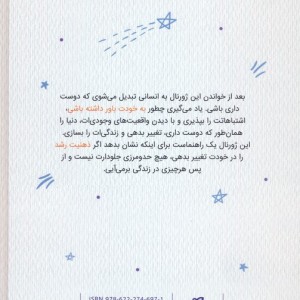 بعد از خواندن این ژورنال به انسانی تبدیل می‌شوی که دوست
داری باشی. یاد می‌گیری چطور به خودت باور داشته باشی،
اشتباهاتت را بپذیری و با دیدن واقعیت‌های وجودی‌ات، دنیا را
همان‌طور که دوست داری، تغییر بدهی و زندگی‌ات را بسازی.
این ژورنال یک راهنماست برای اینکه نشان بدهد اگر ذهنیت رشد
را در خودت تغییر بدهی، هیچ حدومرزی جلودارت نیست و از
پس هرچیزی در زندگی برمی‌آیی.
ISBN 978-622-274-697-1